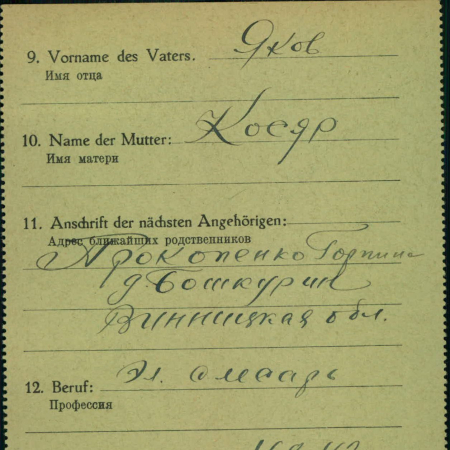 9. Vorname des Vaters. Яков
Имя отца
10. Name der Mutter: Косяр
Имя матери
11. Anschrift der nächsten Angehörigen:
Адрес ближайших родственников
Прокопенко Горпина
д. Бошкурин
Винницкая обл.
12. Beruf: Эл. слесарь
Профессия